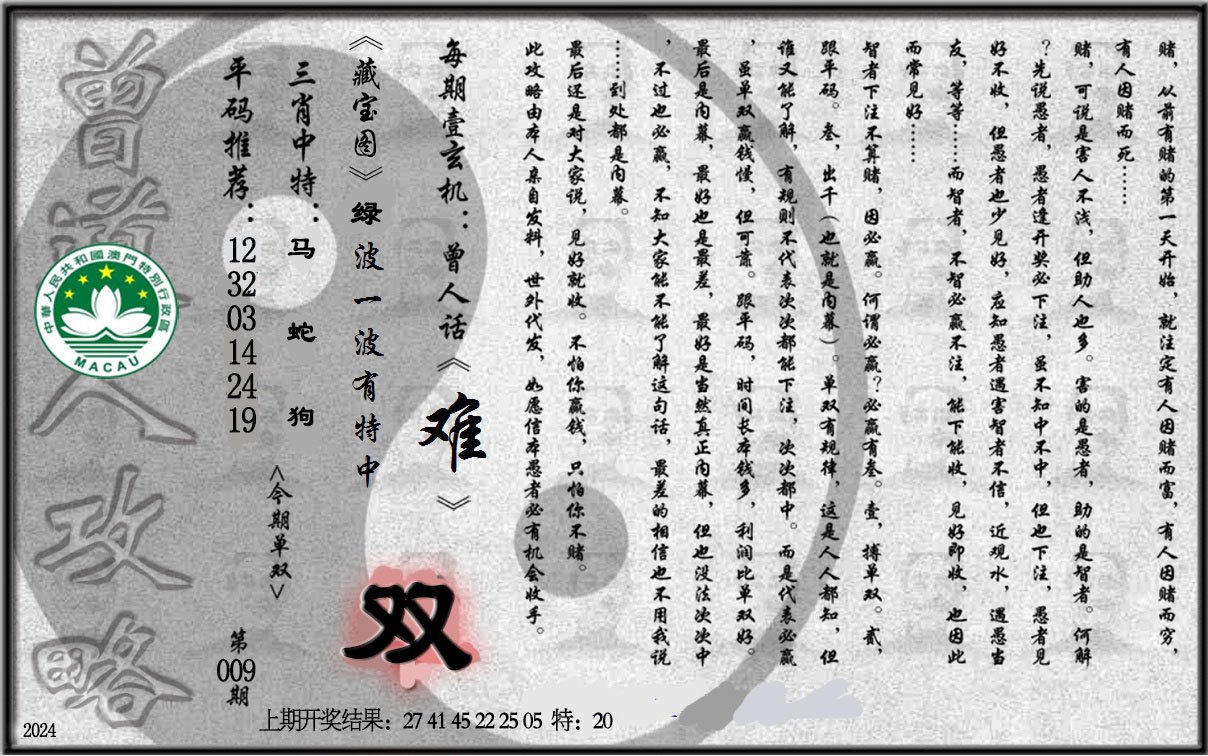 赌，从前有赌的第一天开始，就注定有人因赌而富，有人因赌而穷，
有人因赌而死……
赌，可说是害人不浅，但助人也多。害的是愚者，助的是智者。何解
？先说愚者，愚者逢开奖必下注，虽不知中不中，但也下注，愚者见
好不收，但愚者也少见好，应知愚者遇害智者不信，近观水，遇愚当
友，等等……而智者，不智必赢不注，能下能收，见好即收，也因此
而常见好……
智者下注不算赌，因必赢。何谓必赢？必赢有叁。壹，搏单双。贰，
跟平码。叁，出千（也就是内幕）。单双有规律，这是人人都知，但
谁又能了解，有规则不代表次次都能下注，次次都中。而是代表必赢
，虽单双赢钱慢，但可靠。跟平码，时间长本钱多，利润比单双好。
最后是内幕，最好也是最差，最好是当然真正内幕，但也没法次次中
，不过也必赢，不知大家能不能了解这句话，最差的相信也不用我说
……到处都是内幕。
最后还是对大家说，见好就收。不怕你赢钱，只怕你不赌。
此攻略由本人亲自发料，世外代发，如愿信本愚者必有机会收手。
每期壹玄机：曾人话《难》
《藏宝图》绿波一波有特中
双
三肖中特：马 蛇 狗
<今期单双>
平码推荐：12 32 03 14 24 19
第009期
曾道人攻略
中華人民共和國澳門特別行政區
MACAU
上期开奖结果：27 41 45 22 25 05 特：20
2024